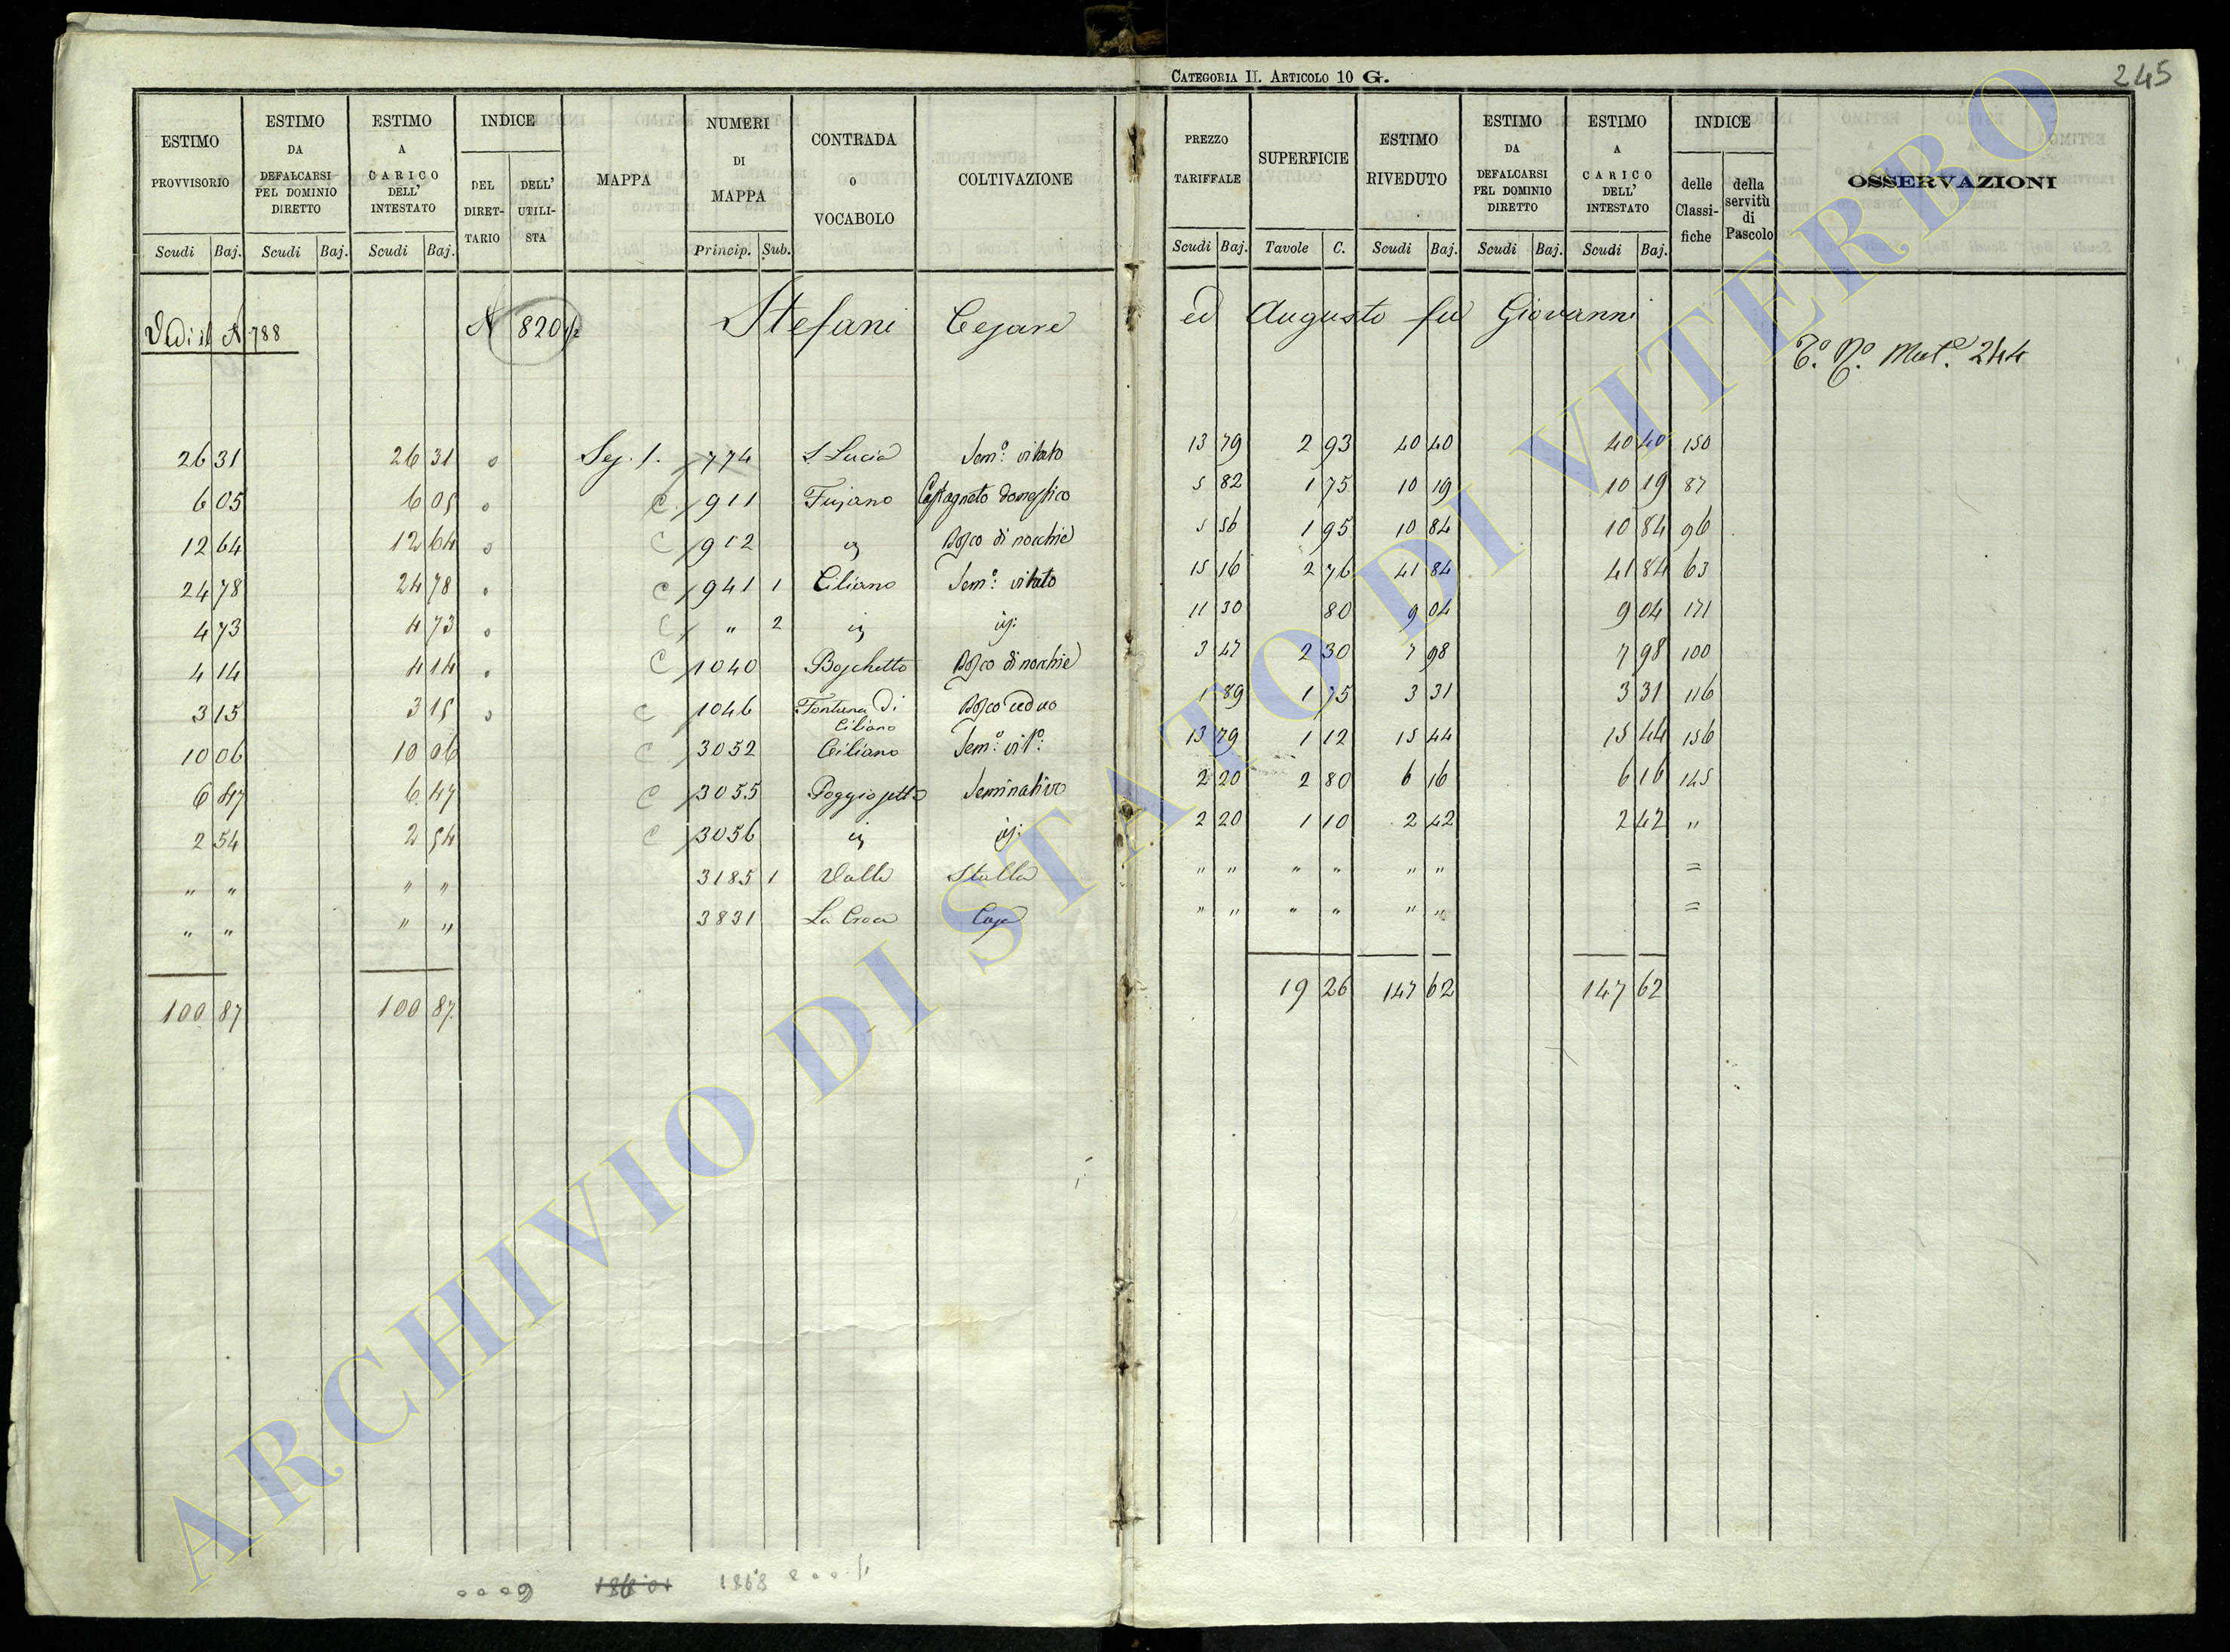 CATEGORIA II. ARTICOLO 10 G.
245
ESTIMO PROVVISORIO | ESTIMO DA DEFALCARSI PEL DOMINIO DIRETTO | ESTIMO A CARICO DELL' INTESTATO | INDICE | MAPPA | NUMERI DI MAPPA | CONTRADA O VOCABOLO | COLTIVAZIONE | PREZZO TARIFFALE | SUPERFICIE | ESTIMO RIVEDUTO | ESTIMO DA DEFALCARSI PEL DOMINIO DIRETTO | ESTIMO A CARICO DELL' INTESTATO | INDICE | OSSERVAZIONI
DEL DIRETTARIO | DELL' UTILISTA | delle Classifiche | della servitù di Pascolo
Scudi Baj. | Scudi Baj. | Scudi Baj. | Princip. Sub. | Scudi Baj. | Tavole C. | Scudi Baj. | Scudi Baj. | Scudi Baj.
Vedi il N 788 N 820 Stefani Cesare ed Augusto fu Giovanni
T.º N.º Mat.e 244
26 31 26 31 Sez. 1. 774 S. Lucia Sem.º vitato 13 79 2 93 40 40 40 40 150
6 05 6 05 C 911 Fusano Castagneto domestico 5 82 1 75 10 19 10 19 87
12 64 12 64 C 912 Bosco di nocchie 5 56 1 95 10 84 10 84 96
24 78 24 78 C 941 1 Ciliano Sem.º vitato 15 16 2 76 41 84 41 84 63
4 73 4 73 C " 2 11 30 80 9 04 9 04 171
4 14 4 14 C 1040 Boschetto Bosco di nocchie 3 47 2 30 7 98 7 98 100
3 15 3 15 C 1046 Fontana di Ciliano Bosco ceduo 1 89 1 75 3 31 3 31 116
10 06 10 06 C 3052 Ciliano Sem.º vit.º 13 79 1 12 15 44 15 44 156
6 47 6 47 C 3055 Seminativo 2 20 2 80 6 16 6 16 145
2 54 2 54 C 3056 2 20 1 10 2 42 2 42 "
" " " " 3185 1 Valle Stalla " " " " " " =
" " " " 3831 La Croce Casa " " " " " " =
100 87 100 87 19 26 147 62 147 62
1868
ARCHIVIO DI STATO DI VITERBO